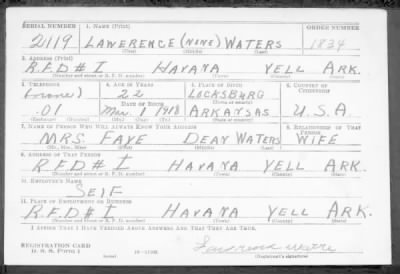 SERIAL NUMBER 1. NAME (Print) ORDER NUMBER
2119 LAWERENCE (NONE) WATERS 1834
(First) (Middle) (Last)
2. ADDRESS (Print)
R.F.D # I HAVANA YELL ARK.
(Number and street or R. F. D. number) (Town) (County) (State)
3. TELEPHONE 4. AGE IN YEARS 5. PLACE OF BIRTH 6. COUNTRY OF CITIZENSHIP
(NONE) 22 LOCKSBURG
DATE OF BIRTH (Town or county)
01 Mar. 1 1918 ARKANSAS U.S.A.
(Exchange) (Number) (Mo.) (Day) (Yr.) (State or country)
7. NAME OF PERSON WHO WILL ALWAYS KNOW YOUR ADDRESS 8. RELATIONSHIP OF THAT PERSON
MRS. FAYE DEAN WATERS WIFE
(Mr., Mrs., Miss) (First) (Middle) (Last)
9. ADDRESS OF THAT PERSON
R.F.D # I HAVANA YELL ARK.
(Number and street or R. F. D. number) (Town) (County) (State)
10. EMPLOYER'S NAME
SELF
11. PLACE OF EMPLOYMENT OR BUSINESS
R.F.D. # I HAVANA YELL ARK.
(Number and street or R. F. D. number) (Town) (County) (State)
I AFFIRM THAT I HAVE VERIFIED ABOVE ANSWERS AND THAT THEY ARE TRUE.
REGISTRATION CARD
D. S. S. Form 1 (over) (Registrant's signature)